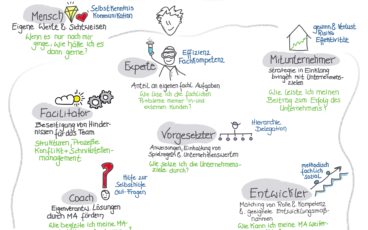 Mensch
Selbstkenntnis
Kommunikation
Eigene Werte & Sichtweisen
Wenn es nur nach mir
ginge, wie hätte ich es
dann gerne?
Experte
Effizienz
Fachkompetenz
Anteil an eigenen fachl. Aufgaben
Wie löse ich die fachlichen
Probleme meiner
Kunden?
gewinn & Verlust
Risiko
Effektivität
Mitunternehmer
Strategie in Einklang
bringen mit Unternehmens-
zielen
Wie leiste ich meinen
Beitrag zum Erfolg des
Unternehmens?
Facilitator
Beseitigung von Hinder-
nissen für das Team
Strukturen, Prozesse
Konflikt + Schnittstellen-
management
Vorgesetzter
Hierarchie
Delegation
Anweisungen, Einhaltung von
Spielregeln & Unternehmenswerten
Wie setze ich die Unternehmens-
ziele durch?
Coach
Hilfe zur
Selbsthilfe
Fragen
Eigenverantw. Lösungen
durch MA fördern
Wie begleite ich meine MA
methodisch
fachlich
sozial
Entwickler
Matching von Rolle & Kompetenz
& geeignete Entwicklungsmaß-
nahmen
Wie kann ich meine MA weiter-